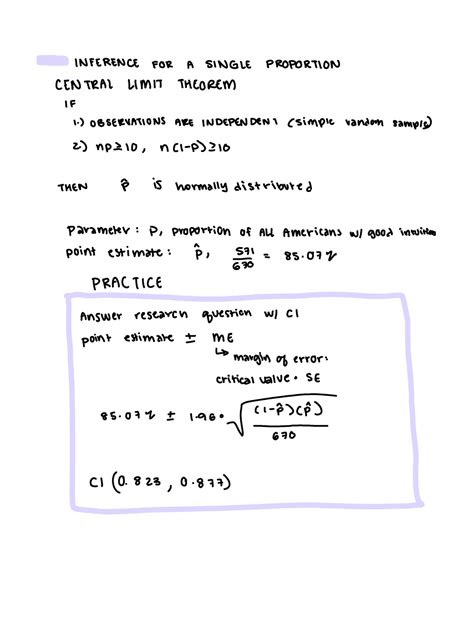 INFERENCE FOR A SINGLE PROPORTION
CENTRAL LIMIT THEOREM
IF
1.) OBSERVATIONS ARE INDEPENDENT (simple random sample)
2) np≥10, n(1-p)≥10
THEN p̂ is normally distributed
Parameter: P, proportion of ALL Americans w/ good intuition
point estimate: p̂, 571/670 = 85.07%
PRACTICE
Answer research question w/ CI
point estimate ± ME
↳ margin of error:
critical value • SE
85.07% ± 1.96 • √((1-p̂)(p̂)/670)
CI (0.823, 0.877)